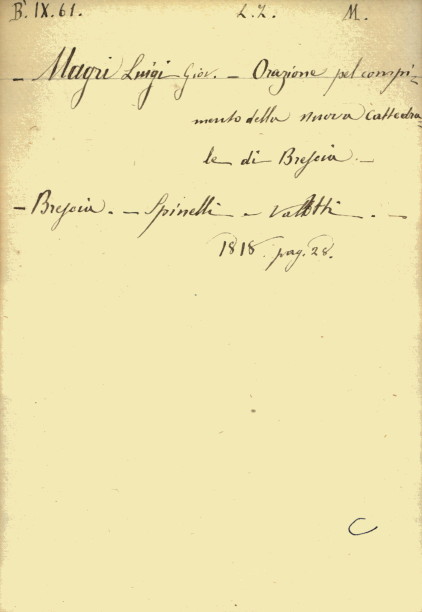 B. IX. 61. L. L. M.
– Magri Luigi Giov. – Orazione pel compi=
mento della nuova Cattedra=
le di Brescia. –
– Brescia. – Spinelli e Valotti. –
1818. pag. 28.
C